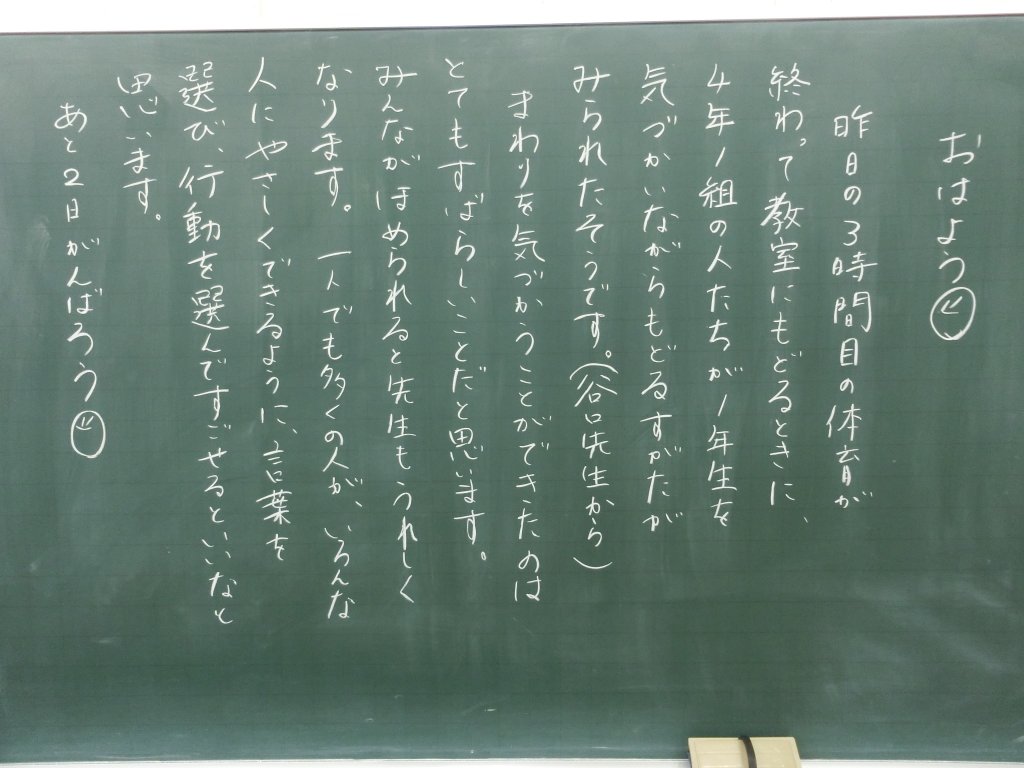 おはよう
昨日の3時間目の体育が
終わって教室にもどるときに、
4年1組の人たちが1年生を
気づかいながらもどるすがたが
みられたそうです。(谷口先生から)
まわりを気づかうことができたのは
とてもすばらしいことだと思います。
みんながほめられると先生もうれしく
なります。一人でも多くの人が、いろんな
人にやさしくできるように、言葉を
選び、行動を選んですごせるといいなと
思います。
あと2日がんばろう